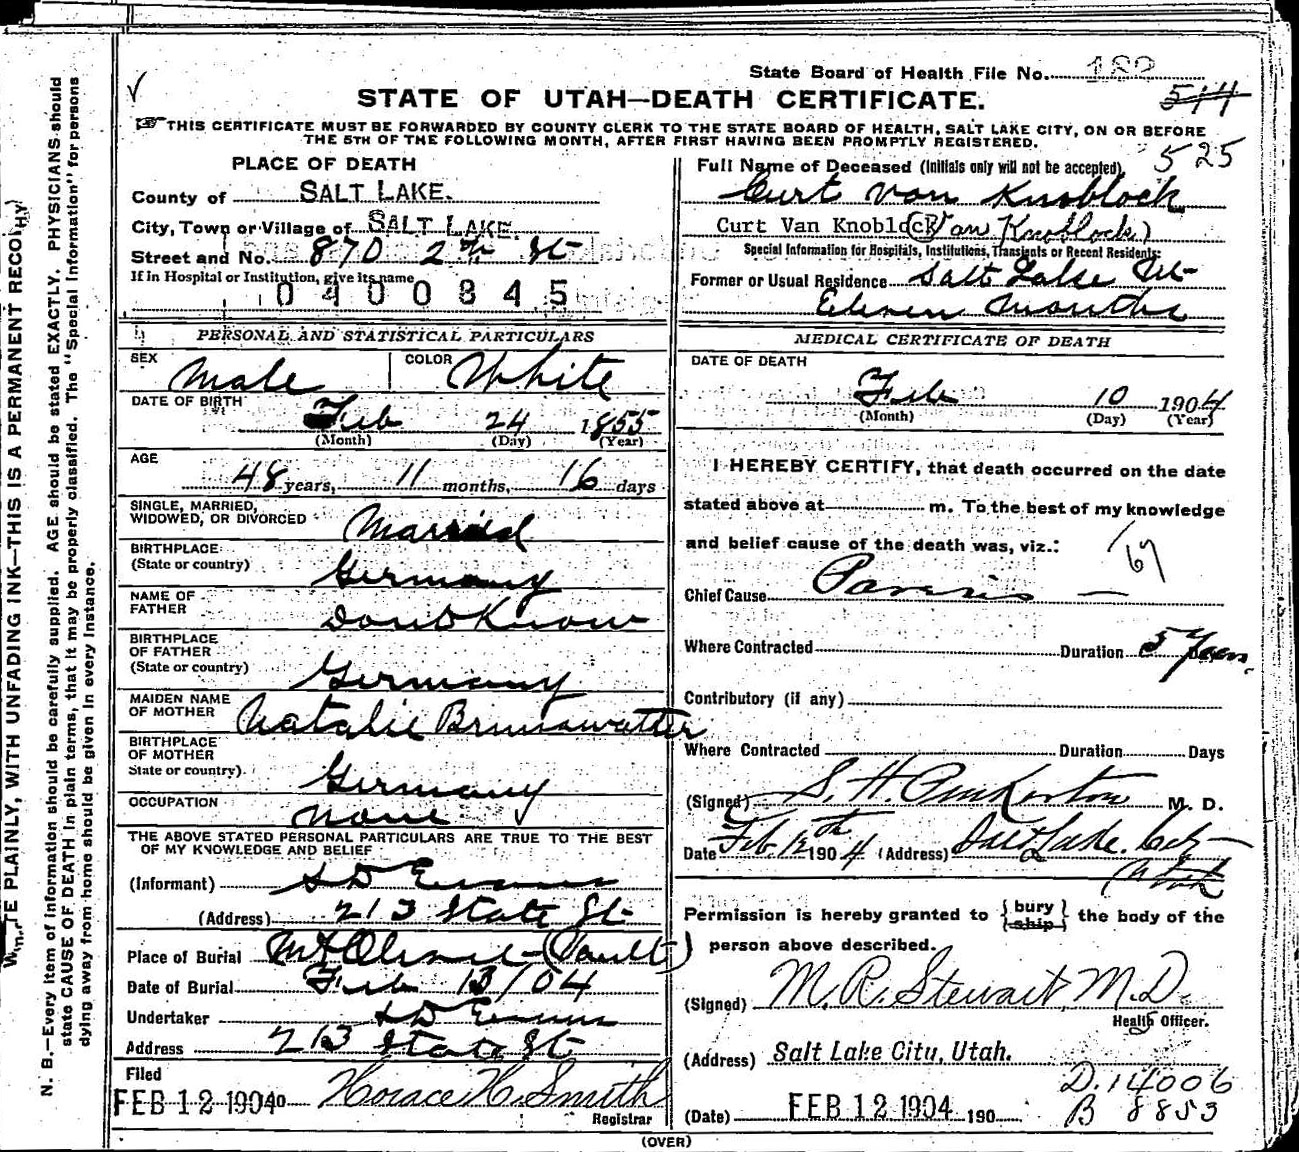 State Board of Health File No. 182
STATE OF UTAH—DEATH CERTIFICATE.
514
THIS CERTIFICATE MUST BE FORWARDED BY COUNTY CLERK TO THE STATE BOARD OF HEALTH, SALT LAKE CITY, ON OR BEFORE
THE 5TH OF THE FOLLOWING MONTH, AFTER FIRST HAVING BEEN PROMPTLY REGISTERED.
525
PLACE OF DEATH
County of SALT LAKE.
City, Town or Village of SALT LAKE.
Street and No. 870 2nd St
If in Hospital or Institution, give its name
0400845
PERSONAL AND STATISTICAL PARTICULARS
SEX Male COLOR White
DATE OF BIRTH
Feb 24 1855
(Month) (Day) (Year)
AGE
48 years, 11 months, 16 days
SINGLE, MARRIED,
WIDOWED, OR DIVORCED Married
BIRTHPLACE
(State or country) Germany
NAME OF
FATHER Dont Know
BIRTHPLACE
OF FATHER
(State or country) Germany
MAIDEN NAME
OF MOTHER Natalie
BIRTHPLACE
OF MOTHER
State or country) Germany
OCCUPATION None
THE ABOVE STATED PERSONAL PARTICULARS ARE TRUE TO THE BEST
OF MY KNOWLEDGE AND BELIEF
(Informant) S D Evans
(Address) 213 State St
Place of Burial Mt Olivet (Vault)
Date of Burial Feb 13/04
Undertaker S D Evans
Address 213 State St
Filed
FEB 12 1904 190 Horace H. Smith
Registrar
Full Name of Deceased (Initials only will not be accepted)
Curt von Knoblock
Curt Van Knoblock (Van Knoblock)
Special Information for Hospitals, Institutions, Transients or Recent Residents:
Former or Usual Residence Salt Lake Ut
Eleven Months
MEDICAL CERTIFICATE OF DEATH
DATE OF DEATH
Feb 10 1904
(Month) (Day) (Year)
I HEREBY CERTIFY, that death occurred on the date
stated above at m. To the best of my knowledge
and belief cause of the death was, viz.:
67
Chief Cause Paresis
Where Contracted Duration 5 Years
Contributory (if any)
Where Contracted Duration Days
(Signed) S. H. Pinkerton M. D.
Date Feb. 12th 1904 (Address) Salt Lake City
Utah
Permission is hereby granted to { bury ship } the body of the
person above described.
(Signed) M. R. Stewart M.D.
Health Officer.
(Address) Salt Lake City, Utah.
D. 14006
(Date) FEB 12 1904 190 B 8853
(OVER)
N. B.—Every item of information should be carefully supplied. AGE should be stated EXACTLY. PHYSICIANS should
state CAUSE OF DEATH in plain terms, that it may be properly classified. The "Special Information" for persons
dying away from home should be given in every instance.
TE PLAINLY, WITH UNFADING INK—THIS IS A PERMANENT RECO